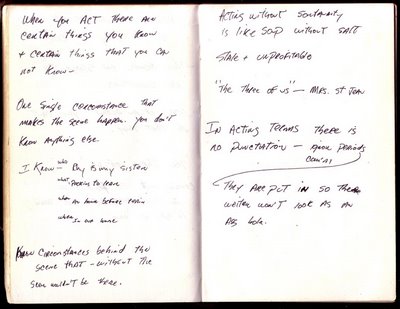 When you ACT there are
certain things you know
+ certain things that you can
not know –
One single circumstance that
makes the scene happen. you don't
know anything else.
I know – who Ray is my sister
what Packing to leave
when An hour before train
where In our house
Know circumstances behind the
scene that – without the
scene wouldn't be there.
Acting without Sontanity
is like soup without salt
stale + unprofitable
"the three of us" – Mrs. St Jean
In Acting Terms there is
no punctuation – periods
commas
They are put in so the
writer won't look as an
Ass hole.